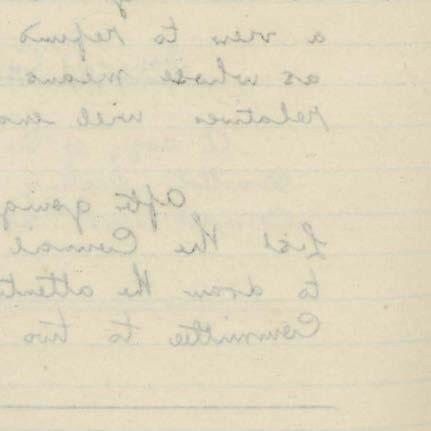 a view to refund
as whose means
relatives will end
After going
List the Council
to draw the attent
Committee to two